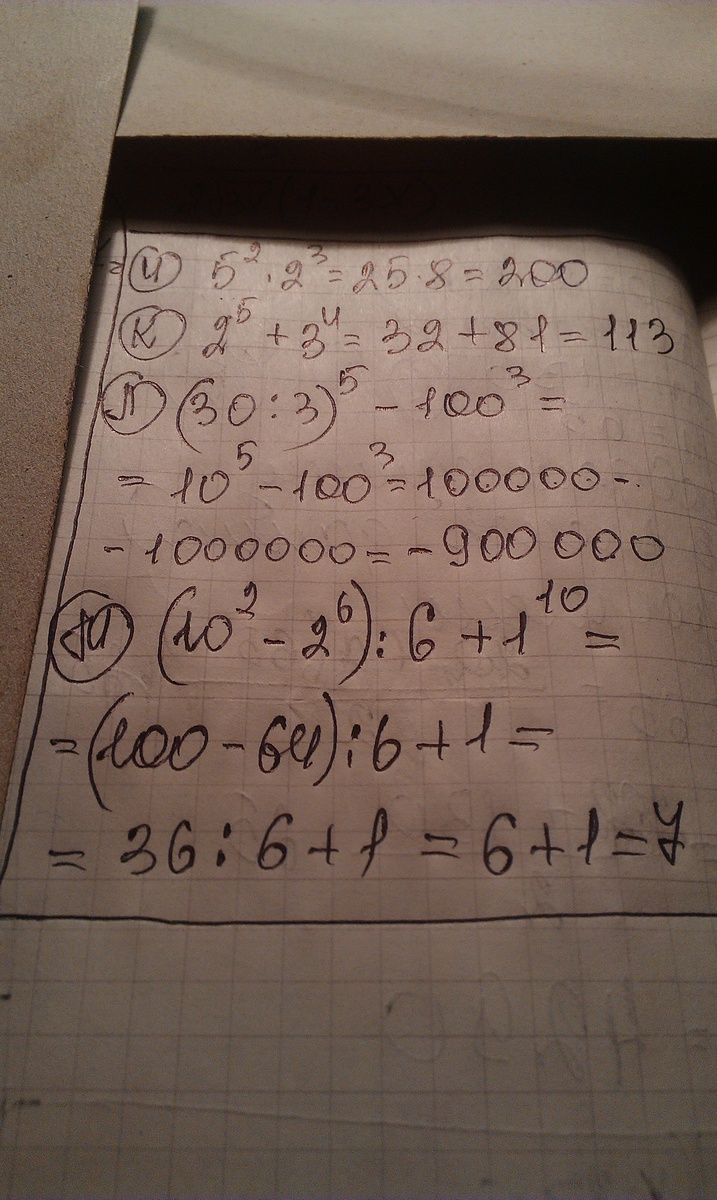 и) 5² · 2³ = 25 · 8 = 200
к) 2⁵ + 3⁴ = 32 + 81 = 113
л) (30 : 3)⁵ - 100³ =
= 10⁵ - 100³ = 100000 -
- 1000000 = - 900 000
м) (10² - 2⁶) : 6 + 1¹⁰ =
= (100 - 64) : 6 + 1 =
= 36 : 6 + 1 = 6 + 1 = 7